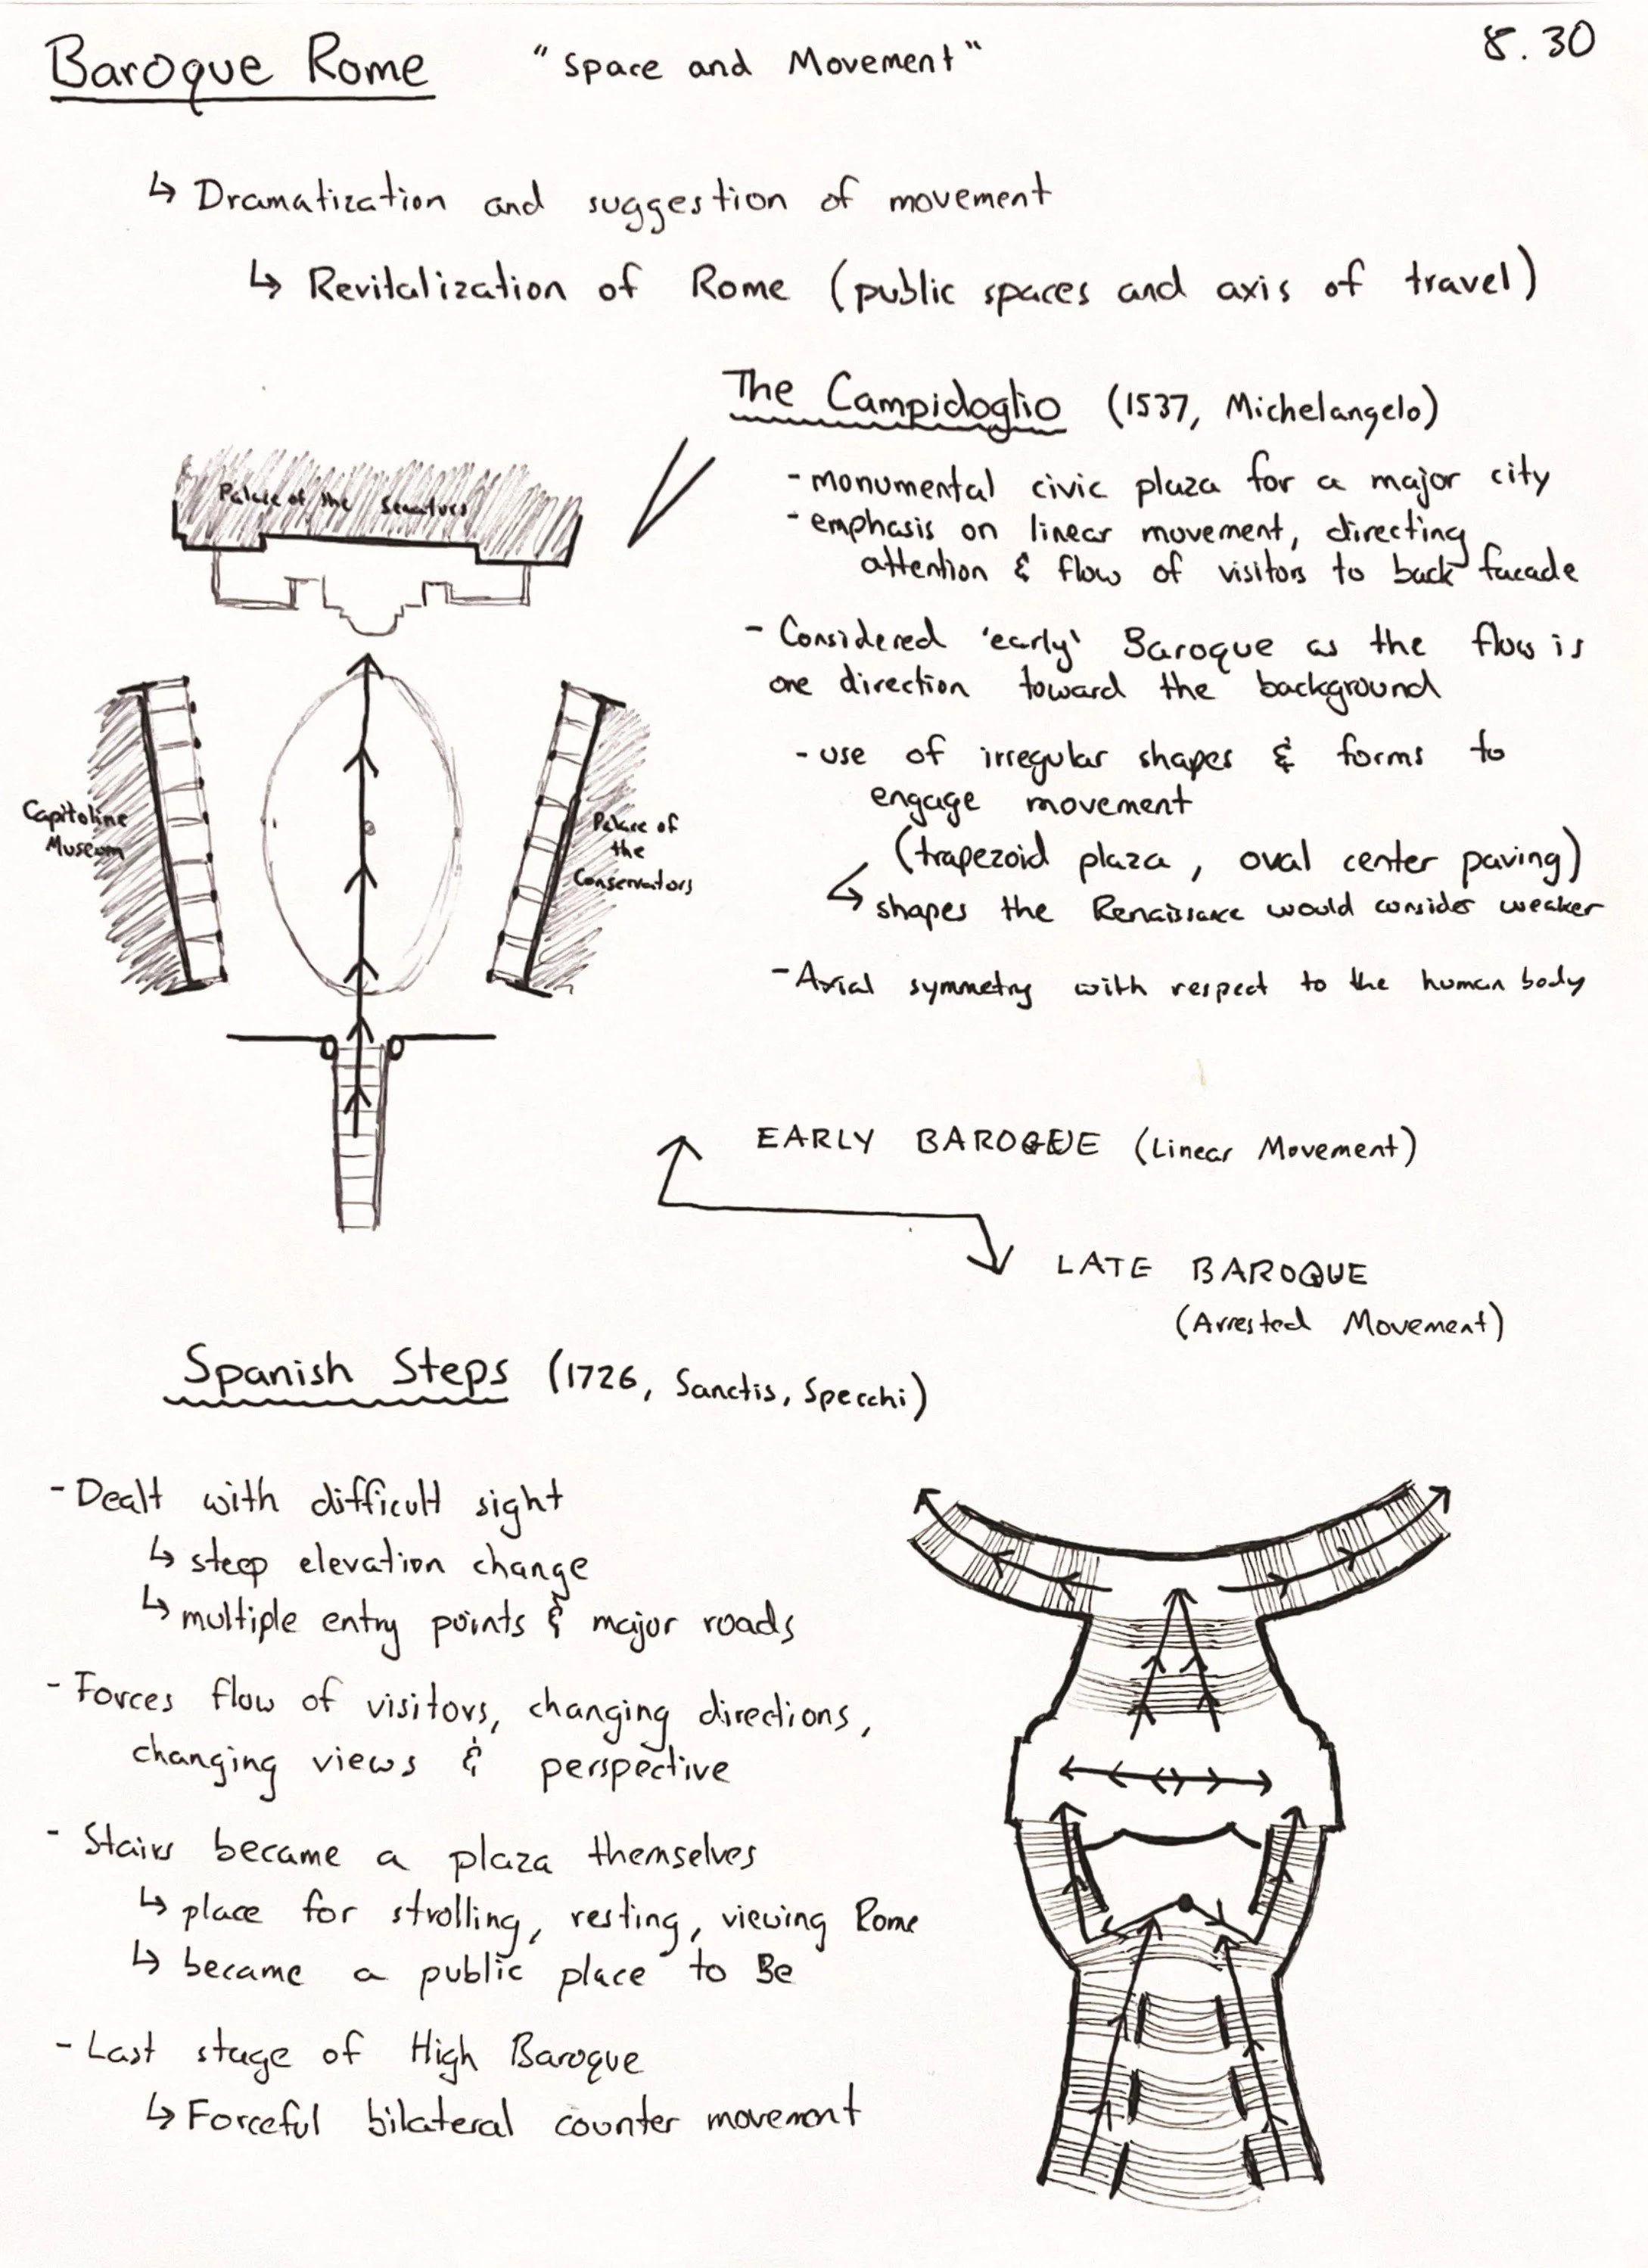 Baroque Rome "Space and Movement" 8.30
↳ Dramatization and suggestion of movement
↳ Revitalization of Rome (public spaces and axis of travel)
The Campidoglio (1537, Michelangelo)
- monumental civic plaza for a major city
- emphasis on linear movement, directing
attention & flow of visitors to back facade
- Considered 'early' Baroque as the flow is
one direction toward the background
- use of irregular shapes & forms to
engage movement
(trapezoid plaza, oval center paving)
↳ shapes the Renaissance would consider weaker
- Axial symmetry with respect to the human body
Palace of the Senators
Capitoline
Museum
Palace of
the
Conservators
EARLY BAROQUE (Linear Movement)
LATE BAROQUE
(Arrested Movement)
Spanish Steps (1726, Sanctis, Specchi)
- Dealt with difficult sight
↳ steep elevation change
↳ multiple entry points & major roads
- Forces flow of visitors, changing directions,
changing views & perspective
- Stairs became a plaza themselves
↳ place for strolling, resting, viewing Rome
↳ became a public place to Be
- Last stage of High Baroque
↳ Forceful bilateral counter movement